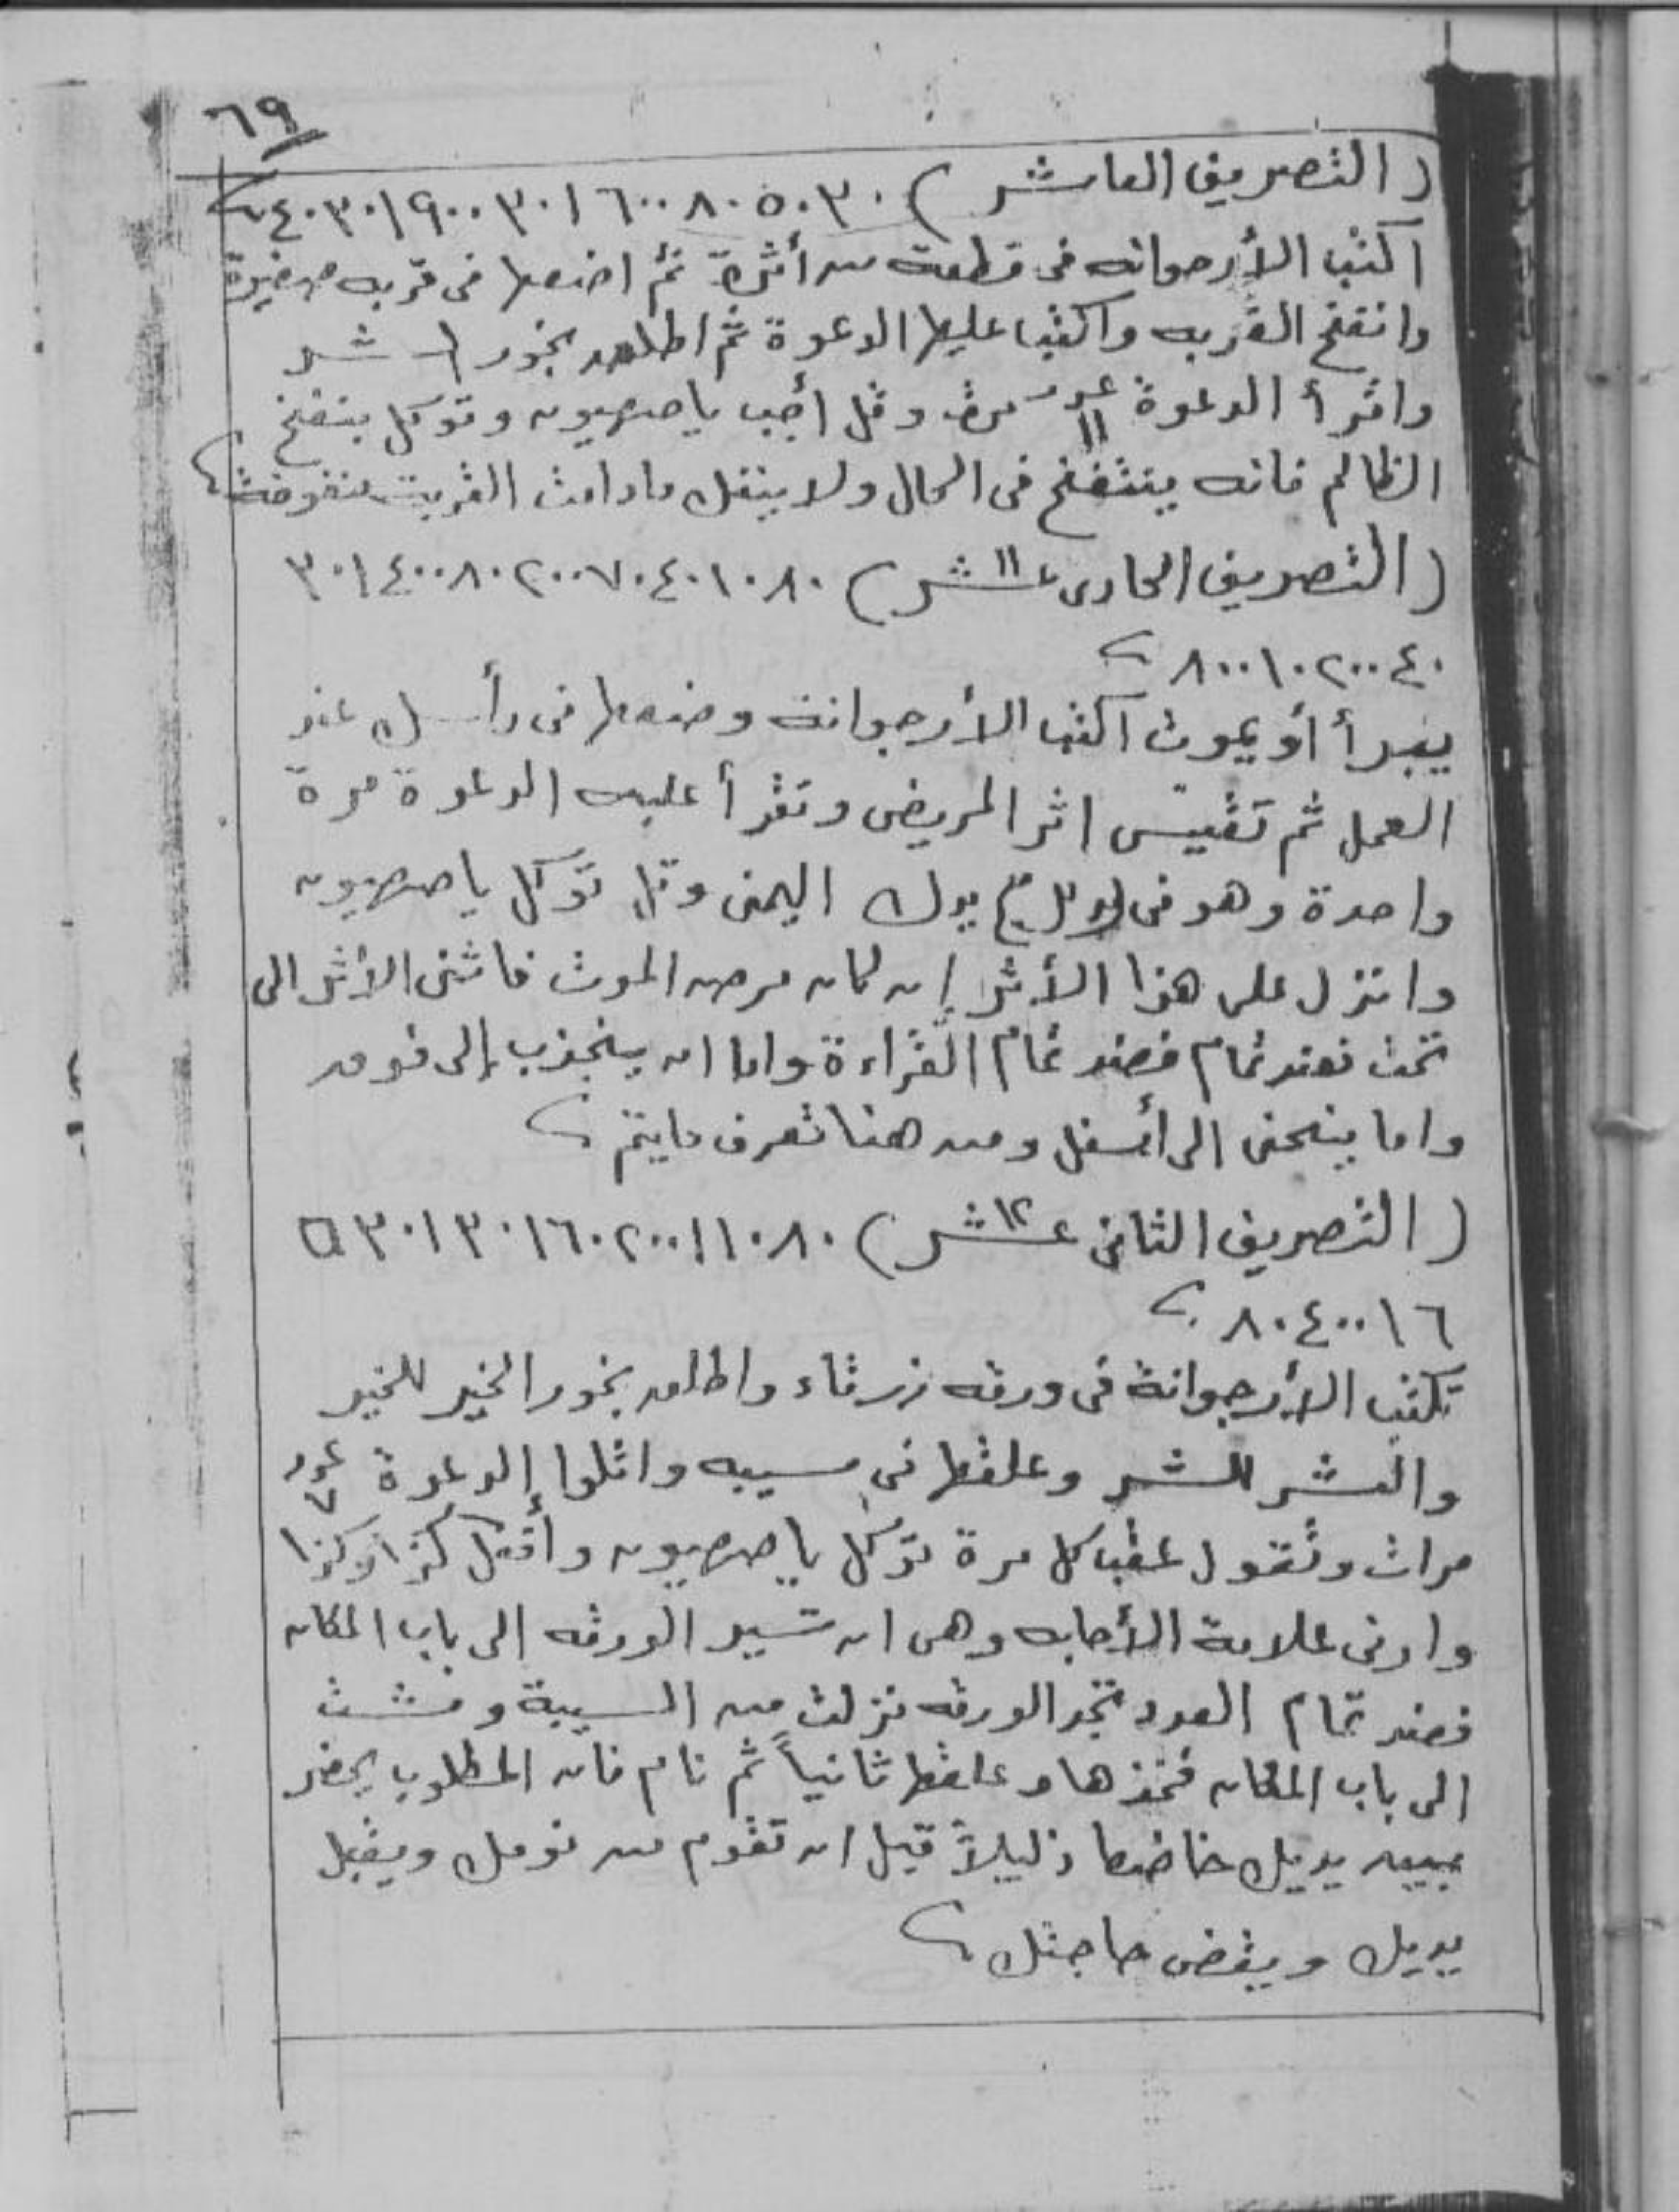 ٦٩
( التصريف العاشر ) ٣٠ ٥٠ ٨٠ ٦٠٠ ١ ٣٠ ٩٠٠ ١ ٣٠ ٤٠
اكتب الأرجوانه فى قطعة من أثرة ثم اضعها فى قربه صغيرة
وانفخ القربه واكتب عليها الدعوة ثم اطلق بخور الشر
واقرأ الدعوة عدد ١١ مرة وقل أجب ياصهيون وتوكل بنفخ
الظالم فانه ينتفخ فى الحال ولا ينفك مادامت القربت منفوخة
( التصريف الحادى عشر ١١ ) ٨٠ ١٠ ٤٠ ٧٠ ٢٠٠ ٨٠ ٤٠٠ ١ ٣٠
٤٠ ٢٠٠ ١٠ ٨٠٠
يبرأ أو يموت اكتب الأرجوانة وضعها فى رأسك عند
العمل ثم تقيس اثر المريض وتقرأ عليه الدعوة مرة
واحدة وهو فى يدك اليمنى وقل توكل ياصهيون
وانزل على هذا الأثر إن كان مرض الموت فاثنى الأثر الى
تحت فعند تمام فعند تمام القراءة واما ان ينجذب إلى فوق
واما ينحنى الى أسفل ومن هنا تعرف مايتم
( التصريف الثانى عشر ١٢ ) ٨٠ ١٠ ١ ٢٠٠ ٦٠ ١ ٣٠ ١ ٣٠ ٥
٦ ١ ٤٠٠ ٨٠
تكتب الأرجوانة فى ورقه زرقاء واطلق بخور الخير للخير
والشر للشر وعلقها فى سيبه واتلوا الدعوة عدد ٧
مرات وتقول عقب كل مرة توكل ياصهيون وأفعل كذا وكذا
وارنى علامة الأجابه وهى ان تسير الورقه الى باب المكان
فعند تمام العدد تجد الورقه نزلت من السيبة ومشت
الى باب المكان فخذها وعلقها ثانياً ثم نام فان المطلوب يحضر
بين يديك خاضعا ذليلاً قبل ان تقوم من نومك ويقبل
يديك ويقضى حاجتك